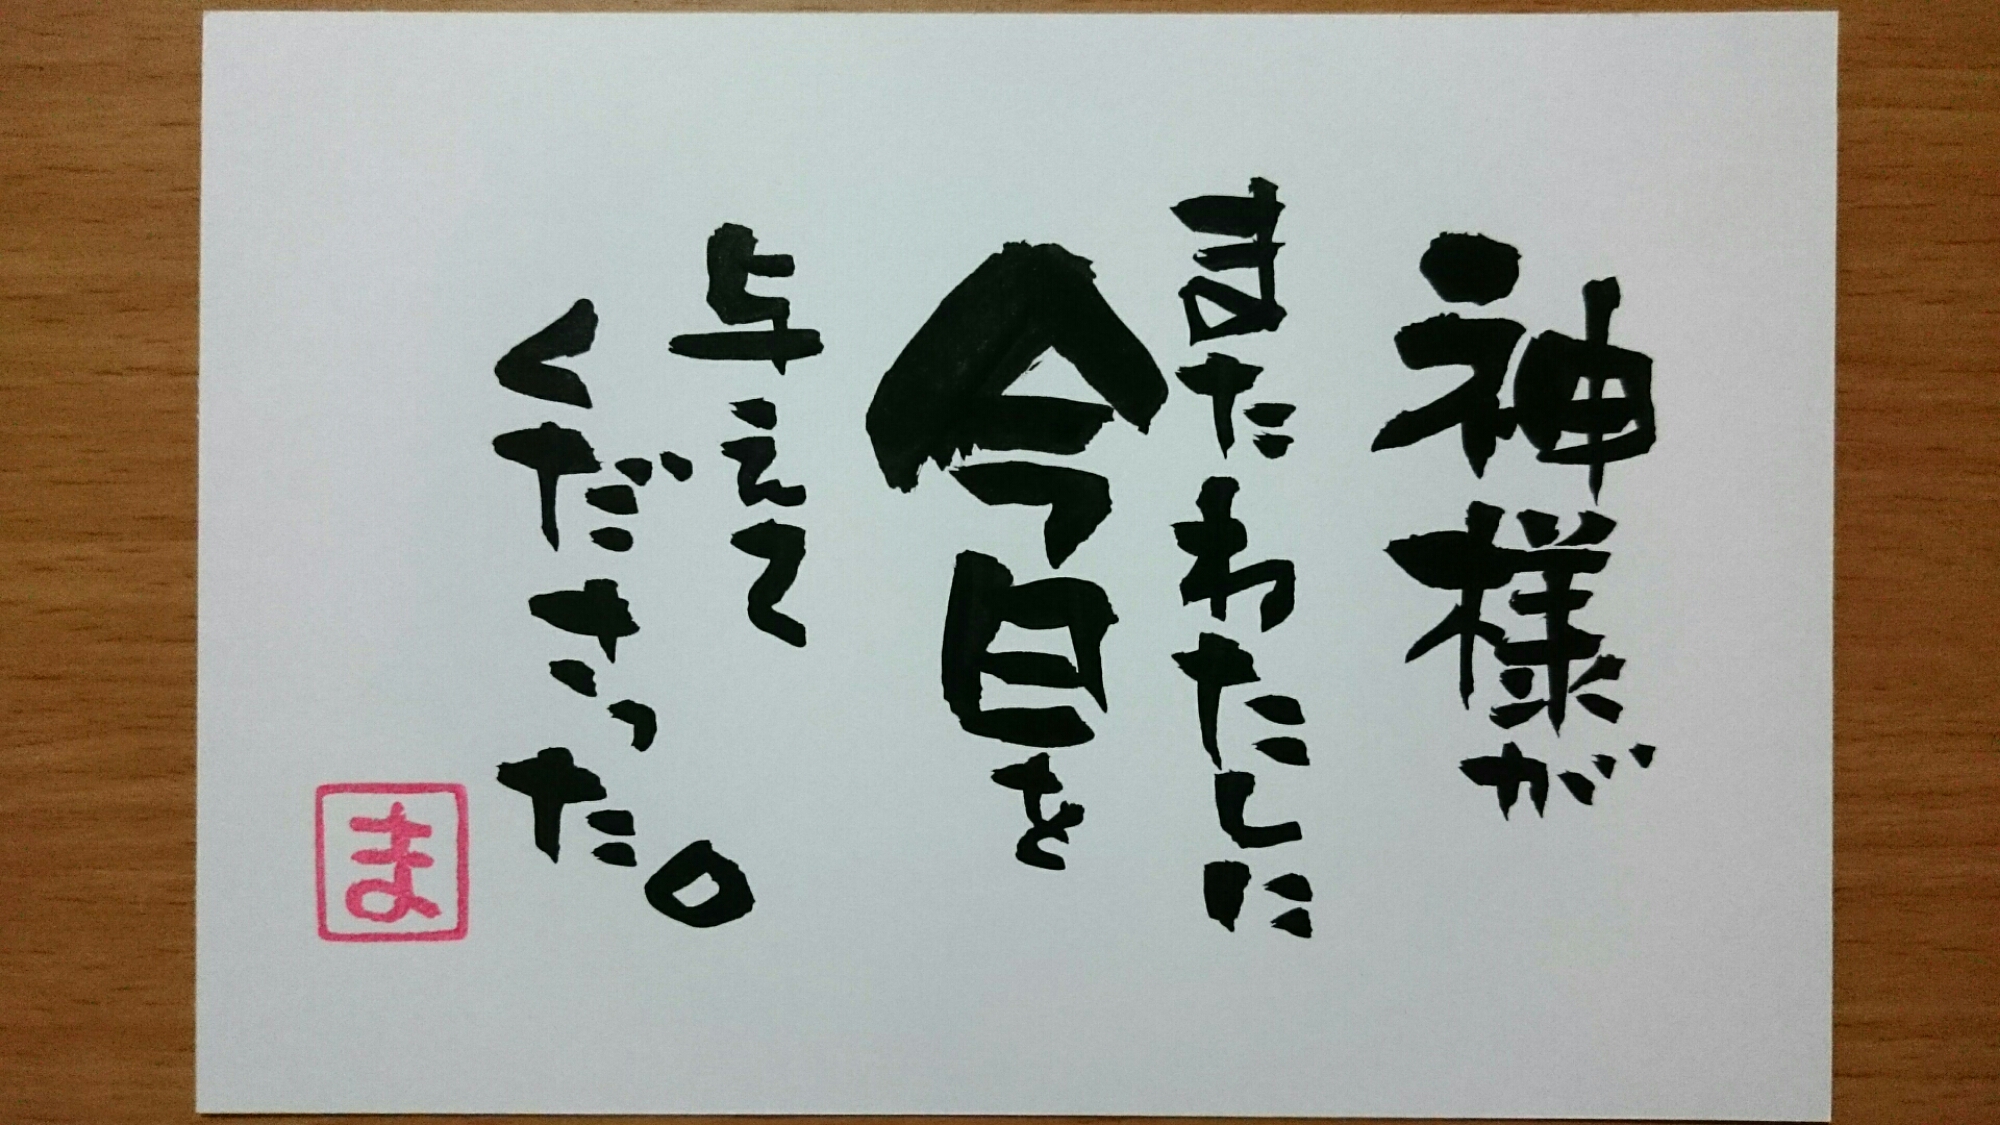 神様が
またわたしに
今日を
与えて
くださった。
ま